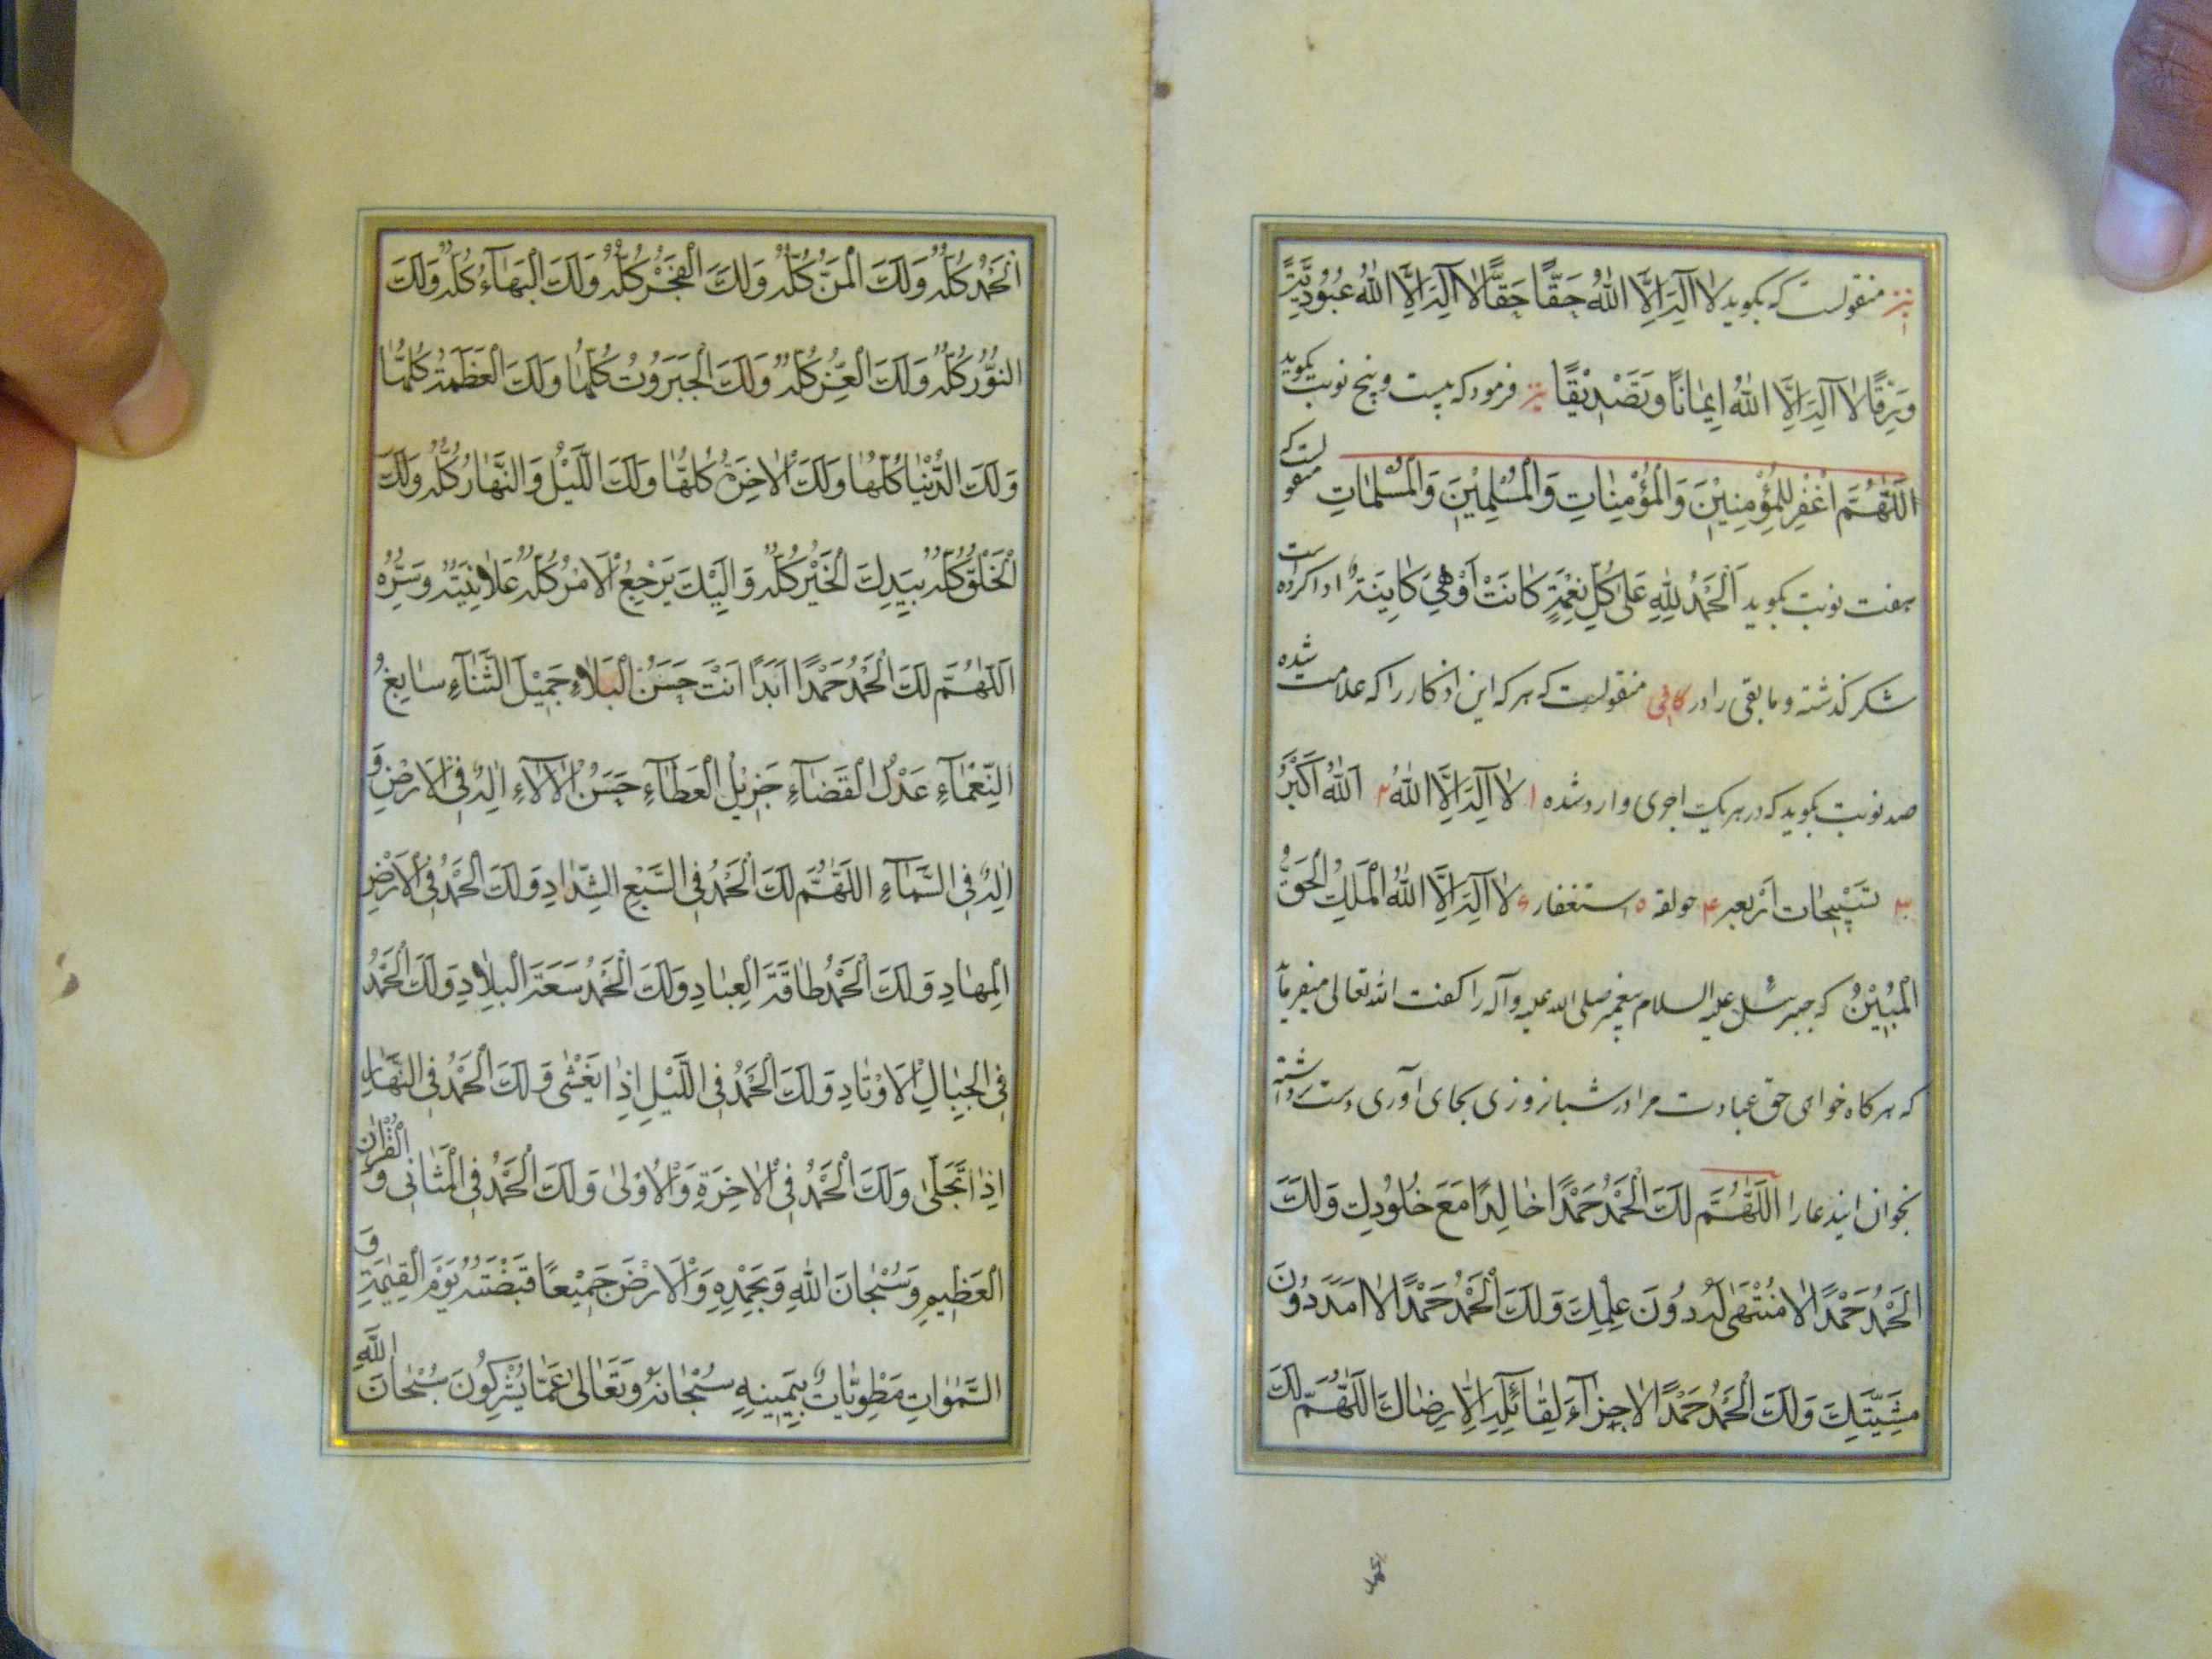 نیز منقولست که بگوید لا اله الا الله حقا حقا لا اله الا الله عبودیة
ورقا لا اله الا الله ایمانا وتصدیقا نیز فرمود که بیست و پنج نوبت بگوید
اللهم اغفر للمؤمنین والمؤمنات والمسلمین والمسلمات منقولست که
هفت نوبت بگوید الحمد لله علی کل نعمة کانت او هی کاینة ادا کرده است
شکر گذشته و مابقی را در کافی منقولست که هر که این اذکار را که علامت شده
صد نوبت بگوید که در هر یک اجری وارد شده ۱ لا اله الا الله ۲ الله اکبر
۳ تسبیحات اربعه ۴ حولقه ۵ استغفار ۶ لا اله الا الله الملک الحق
المبین که جبرئیل علیه السلام پیغمبر صلی الله علیه وآله را گفت الله تعالی میفرماید
که هر گاه خواهی حق عبادت مرا در شبانروزی بجای آوری دست برداشته
بخوان ایندعا را اللهم لک الحمد حمدا خالدا مع خلودک ولک
الحمد حمدا لا منتهی له دون علمک ولک الحمد حمدا لا امد دون
مشیتک ولک الحمد حمدا لا جزآء لقائله الا رضاک اللهم لک
الحمد کله ولک المن کله ولک الفخر کله ولک البهآء کله ولک
النور کله ولک العز کله ولک الجبروت کلها ولک العظمة کلها
ولک الدنیا کلها ولک الاخرة کلها ولک اللیل والنهار کله ولک
الخلق کله بیدک الخیر کله والیک یرجع الامر کله علانیته وسره
اللهم لک الحمد حمدا ابدا انت حسن البلاء جمیل الثنآء سابغ
النعمآء عدل القضآء جزیل العطآء حسن الالاء اله فی الارض و
اله فی السمآء اللهم لک الحمد فی السبع الشداد ولک الحمد فی الارض
المهاد ولک الحمد طاقة العباد ولک الحمد سعة البلاد ولک الحمد
فی الجبال الاوتاد ولک الحمد فی اللیل اذا یغشی ولک الحمد فی النهار
اذا تجلی ولک الحمد فی الاخرة والاولی ولک الحمد فی المثانی و القرآن
العظیم وسبحان الله وبحمده والارض جمیعا قبضته یوم القیمة و
السموات مطویات بیمینه سبحانه وتعالی عما یشرکون سبحان الله